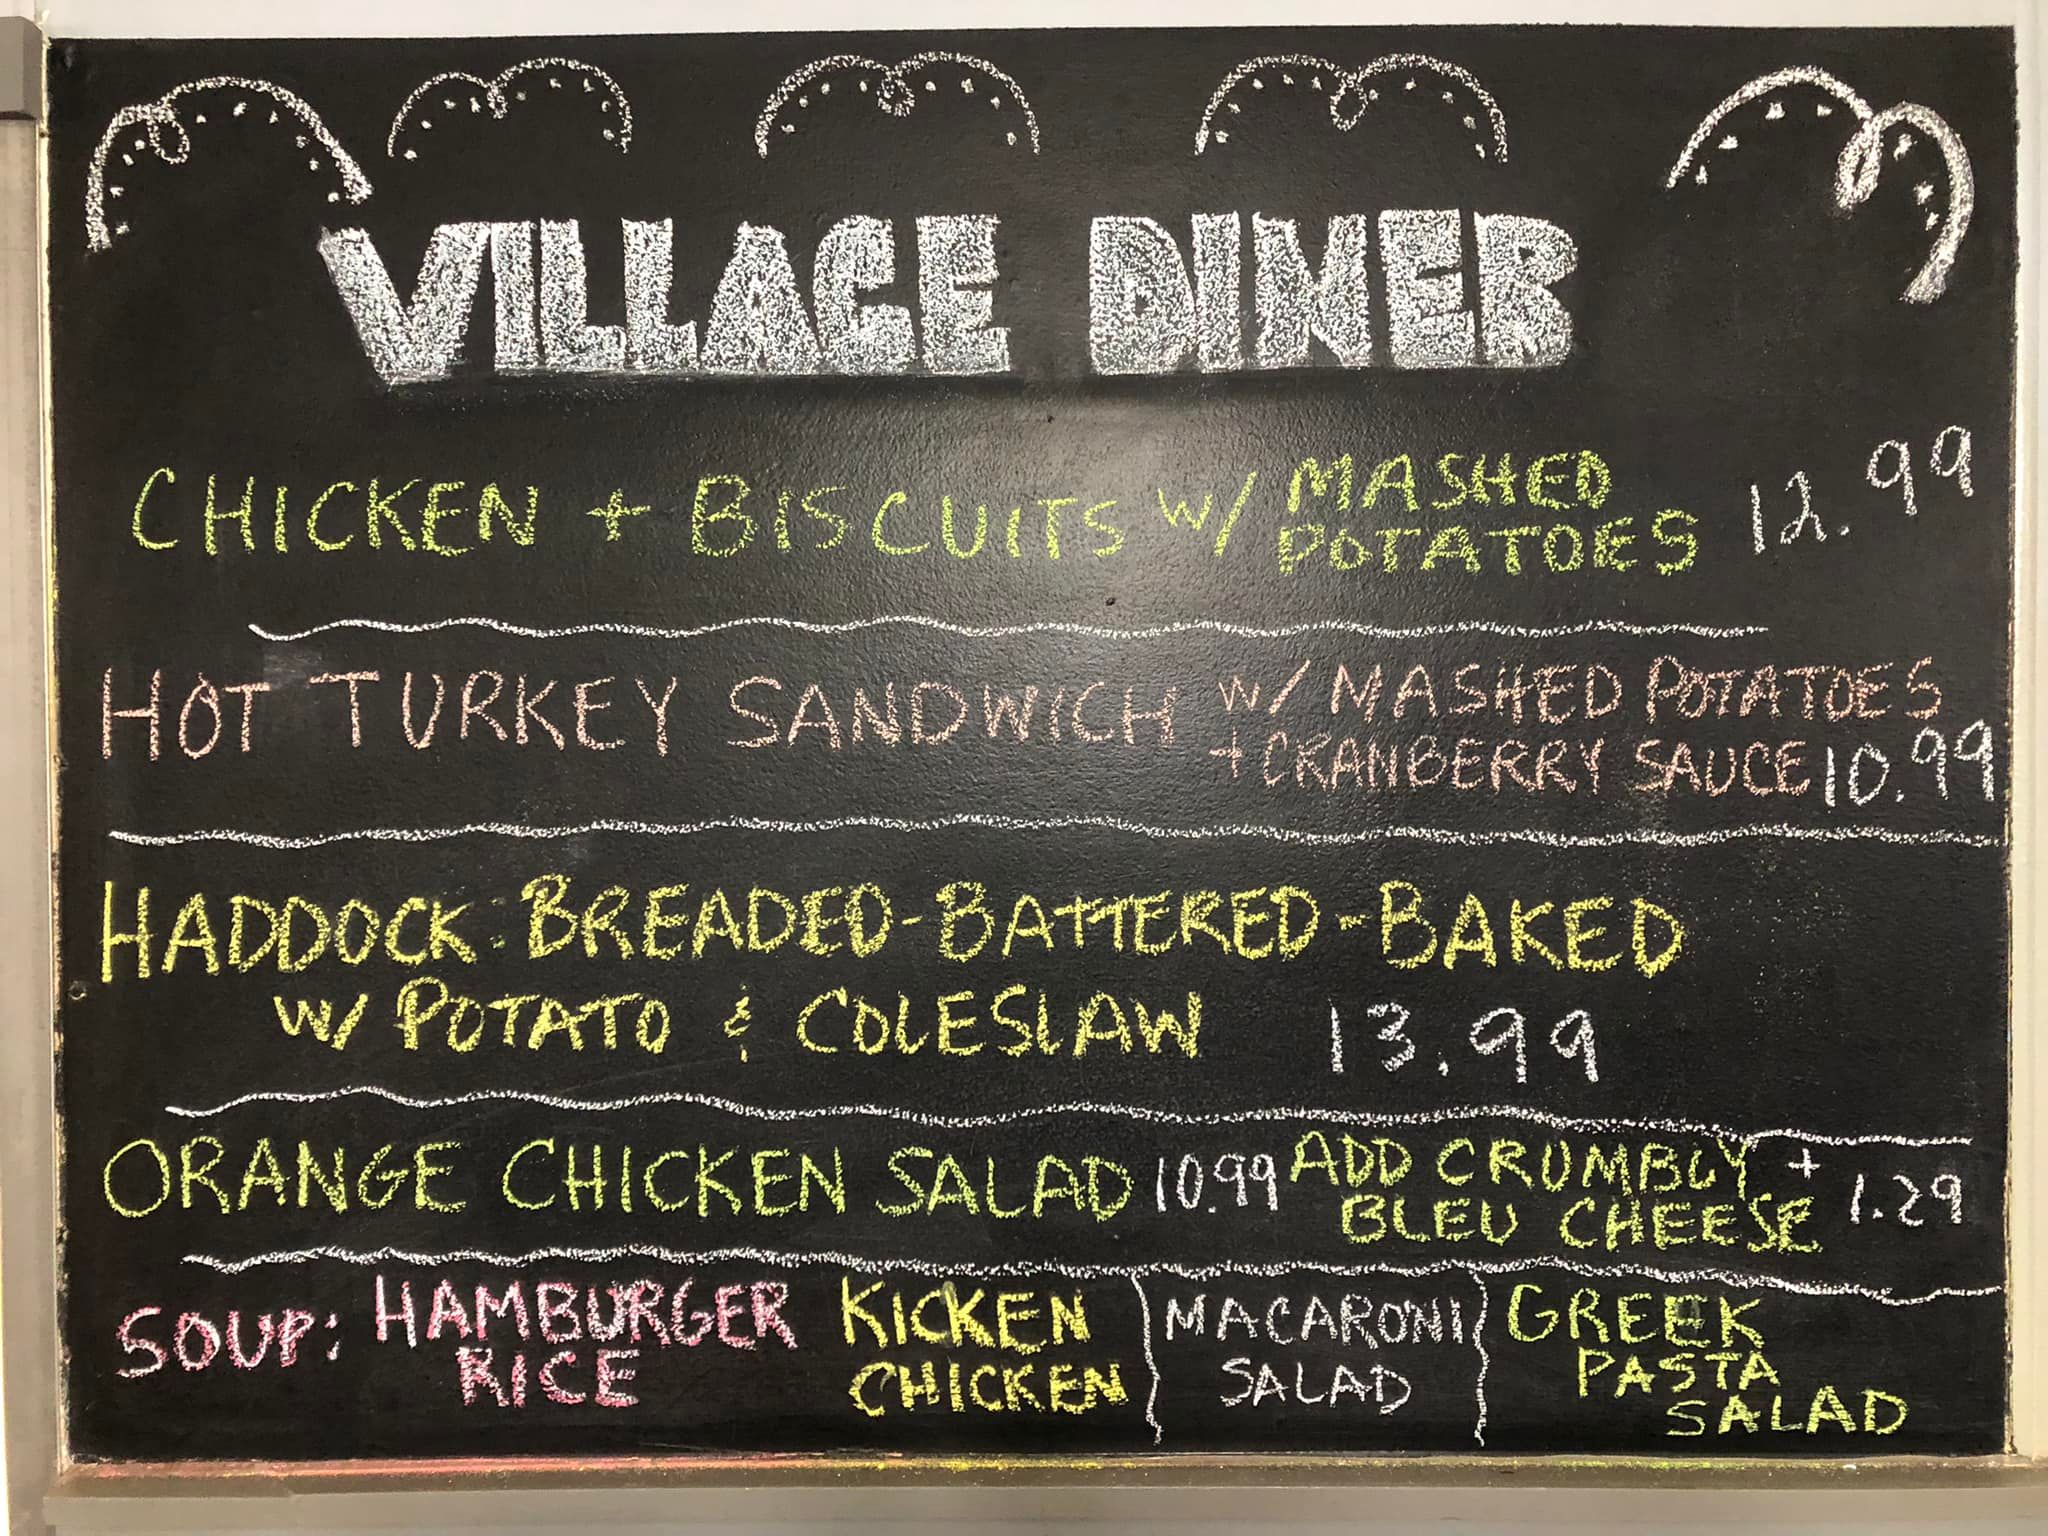 VILLAGE DINER
CHICKEN + BISCUITS W/ MASHED POTATOES 12.99
HOT TURKEY SANDWICH W/ MASHED POTATOES
+ CRANBERRY SAUCE 10.99
HADDOCK: BREADED-BATTERED-BAKED
W/ POTATO & COLESLAW 13.99
ORANGE CHICKEN SALAD 10.99 ADD CRUMBLY BLEU CHEESE + 1.29
SOUP: HAMBURGER RICE
KICKEN CHICKEN
MACARONI SALAD
GREEK PASTA SALAD